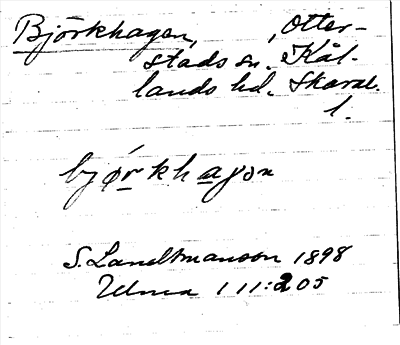 Björkhagen, Otter-
stads sn. Kål-
lands hd. Skarab.
l.
bjørkhagon
S. Landtmanson 1898
Ulma 111:205